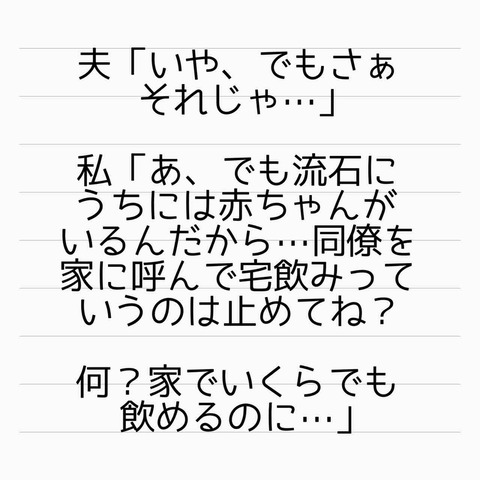 夫「いや、でもさぁ
それじゃ…」
私「あ、でも流石に
うちには赤ちゃんが
いるんだから…同僚を
家に呼んで宅飲みって
いうのは止めてね？
何？家でいくらでも
飲めるのに…」